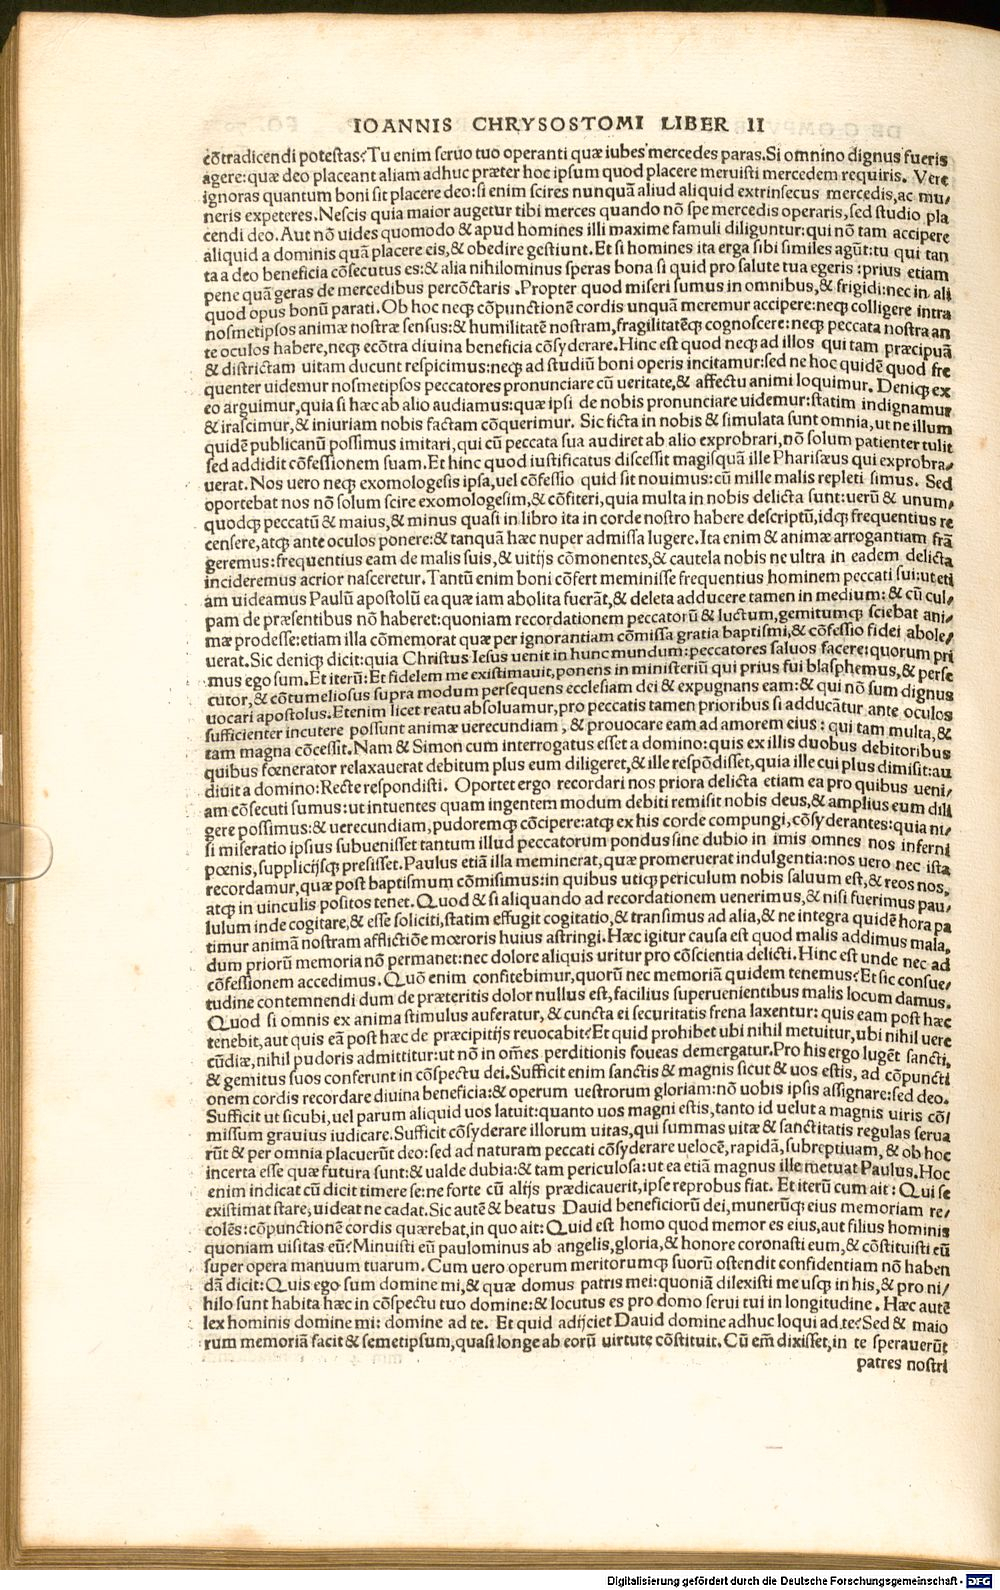 IOANNIS CHRYSOSTOMI LIBER II
cõtradicendi potestas?Tu enim seruo tuo operanti quæ iubes mercedes paras.Si omnino dignus fueris
agere:quæ deo placeant aliam adhuc præter hoc ipsum quod placere meruisti mercedem requiris. Vere
ignoras quantum boni sit placere deo:si enim scires nunquã aliud aliquid extrinsecus mercedis,ac mu/
neris expeteres.Nescis quia maior augetur tibi merces quando nõ spe mercedis operaris,sed studio pla
cendi deo.Aut nõ uides quomodo & apud homines illi maxime famuli diliguntur:qui nõ tam accipere
aliquid a dominis quã placere eis,& obedire gestiunt.Et si homines ita erga sibi similes agũt:tu qui tan
ta a deo beneficia cõsecutus es:& alia nihilominus speras bona si quid pro salute tua egeris :prius etiam
pene quã geras de mercedibus percõctaris .Propter quod miseri sumus in omnibus,& frigidi:nec in ali
quod opus bonũ parati.Ob hoc neq; cõpunctionẽ cordis unquã meremur accipere:neq; colligere intra
nosmetipsos animæ nostræ sensus:& humilitatẽ nostram,fragilitatẽq; cognoscere:neq; peccata nostra an
te oculos habere,neq; ecõtra diuina beneficia cõsyderare.Hinc est quod neq; ad illos qui tam præcipuã
& districtam uitam ducunt respicimus:neq; ad studiũ boni operis incitamur:sed ne hoc quidẽ quod fre
quenter uidemur nosmetipsos peccatores pronunciare cũ ueritate,& affectu animi loquimur. Deniq; ex
eo arguimur,quia si hæc ab alio audiamus:quæ ipsi de nobis pronunciare uidemur:statim indignamur
& irascimur,& iniuriam nobis factam cõquerimur. Sic ficta in nobis & simulata sunt omnia,ut ne illum
quidẽ publicanũ possimus imitari,qui cũ peccata sua audiret ab alio exprobrari,nõ solum patienter tulit
sed addidit cõfessionem suam.Et hinc quod iustificatus discessit magisquã ille Pharisæus qui exprobra/
uerat.Nos uero neq; exomologesis ipsa,uel cõfessio quid sit nouimus:cũ mille malis repleti simus. Sed
oportebat nos nõ solum scire exomologesim,& cõfiteri,quia multa in nobis delicta sunt:uerũ & unum/
quodq; peccatũ & maius,& minus quasi in libro ita in corde nostro habere descriptũ,idq; frequentius re
censere,atq; ante oculos ponere:& tanquã hæc nuper admissa lugere.Ita enim & animæ arrogantiam frã
geremus:frequentius eam de malis suis,& uitijs cõmonentes,& cautela nobis ne ultra in eadem delicta
incideremus acrior nasceretur.Tantũ enim boni cõfert meminisse frequentius hominem peccati sui:ut eti
am uideamus Paulũ apostolũ ea quæ iam abolita fuerãt,& deleta adducere tamen in medium:& cũ cul/
pam de præsentibus nõ haberet:quoniam recordationem peccatorũ & luctum,gemitumq; sciebat ani/
mæ prodesse:etiam illa cõmemorat quæ per ignorantiam cõmissa gratia baptismi,& cõfessio fidei abole/
uerat.Sic deniq; dicit:quia Christus Iesus uenit in hunc mundum:peccatores saluos facere:quorum pri
mus ego sum.Et iterũ:Et fidelem me existimauit,ponens in ministeriũ qui prius fui blasphemus,& perse
cutor,& cõtumeliosus supra modum persequens ecclesiam dei & expugnans eam:& qui nõ sum dignus
uocari apostolus.Etenim licet reatu absoluamur,pro peccatis tamen prioribus si adducãtur ante oculos
sufficienter incutere possunt animæ uerecundiam, & prouocare eam ad amorem eius: qui tam multa,&
tam magna cõcessit.Nam & Simon cum interrogatus esset a domino:quis ex illis duobus debitoribus
quibus fœnerator relaxauerat debitum plus eum diligeret,& ille respõdisset,quia ille cui plus dimisit:au
diuit a domino:Recte respondisti. Oportet ergo recordari nos priora delicta etiam ea pro quibus ueni/
am cõsecuti sumus:ut intuentes quam ingentem modum debiti remisit nobis deus,& amplius eum dili
gere possimus:& uerecundiam,pudoremq; cõcipere:atq; ex his corde compungi,cõsyderantes:quia ni/
si miseratio ipsius subuenisset tantum illud peccatorum pondus sine dubio in imis omnes nos inferni
pœnis,supplicijsq; presisset.Paulus etiã illa meminerat,quæ promeruerat indulgentia:nos uero nec ista
recordamur,quæ post baptismum cõmisimus:in quibus utiq; periculum nobis saluum est,& reos nos,
atq; in uinculis positos tenet.Quod & si aliquando ad recordationem uenerimus,& nisi fuerimus pau/
lulum inde cogitare,& esse soliciti,statim effugit cogitatio,& transimus ad alia,& ne integra quidẽ hora pa
timur animã nostram afflictiõe mœroris huius astringi.Hæc igitur causa est quod malis addimus mala,
dum priorũ memoria nõ permanet:nec dolore aliquis uritur pro cõscientia delicti.Hinc est unde nec ad
cõfessionem accedimus.Quõ enim confitebimur,quorũ nec memoriã quidem tenemus?Et sic consue/
tudine contemnendi dum de præteritis dolor nullus est,facilius superuenientibus malis locum damus.
Quod si omnis ex anima stimulus auferatur, & cuncta ei securitatis frena laxentur: quis eam post hæc
tenebit,aut quis eã post hæc de præcipitijs reuocabit?Et quid prohibet ubi nihil metuitur,ubi nihil uere
cũdiæ,nihil pudoris admittitur:ut nõ in om̃es perditionis foueas demergatur.Pro his ergo lugẽt sancti,
& gemitus suos conferunt in cõspectu dei.Sufficit enim sanctis & magnis sicut & uos estis, ad cõpuncti
onem cordis recordare diuina beneficia:& operum uestrorum gloriam:nõ uobis ipsis assignare:sed deo.
Sufficit ut sicubi,uel parum aliquid uos latuit:quanto uos magni estis,tanto id uelut a magnis uiris cõ/
missum grauius iudicare.Sufficit cõsyderare illorum uitas,qui summas uitæ & sanctitatis regulas serua
rũt & per omnia placuerũt deo:sed ad naturam peccati cõsyderare uelocẽ,rapidã,subreptiuam,& ob hoc
incerta esse quæ futura sunt:& ualde dubia:& tam periculosa:ut ea etiã magnus ille metuat Paulus.Hoc
enim indicat cũ dicit timere se:ne forte cũ alijs prædicauerit,ipse reprobus fiat. Et iterũ cum ait: Qui se
existimat stare,uideat ne cadat.Sic autẽ & beatus Dauid beneficiorũ dei,munerũq; eius memoriam re/
colẽs:cõpunctionẽ cordis quærebat,in quo ait:Quid est homo quod memor es eius,aut filius hominis
quoniam uisitas eũ?Minuisti eũ paulominus ab angelis,gloria,& honore coronasti eum,& cõstituisti eũ
super opera manuum tuarum. Cum uero operum meritorumq; suorũ ostendit confidentiam nõ haben
dã dicit:Quis ego sum domine mi,& quæ domus patris mei:quoniã dilexisti me usq; in his,& pro ni/
hilo sunt habita hæc in cõspectu tuo domine:& locutus es pro domo serui tui in longitudine. Hæc autẽ
lex hominis domine mi: domine ad te. Et quid adijciet Dauid domine adhuc loqui ad te?Sed & maio
rum memoriã facit & semetipsum,quasi longe ab eorũ uirtute cõstituit.Cũ em̃ dixisset,in te sperauerũt
patres nostri
Digitalisierung gefördert durch die Deutsche Forschungsgemeinschaft - DFG